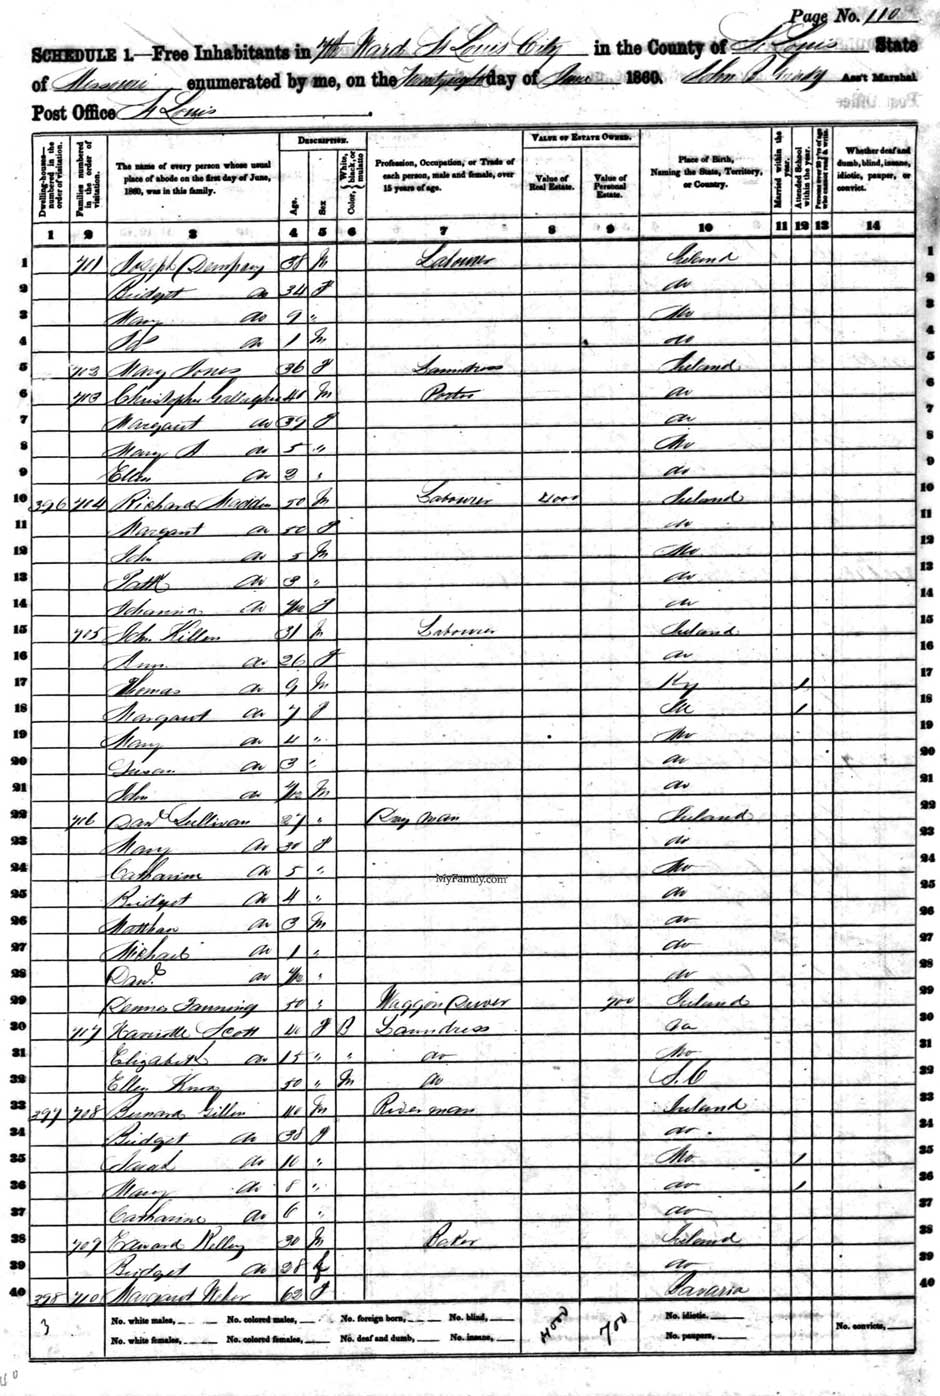 Page No. 110
SCHEDULE 1.—Free Inhabitants in 7th Ward St Louis City in the County of St. Louis State
of Missouri enumerated by me, on the day of June 1860. John Ass't Marshal
Post Office St Louis
Dwelling-house numbered in the order of visitation. Families numbered in the order of visitation. The name of every person whose usual place of abode on the first day of June, 1860, was in this family. DESCRIPTION. Age. Sex Color, White, black, or mulatto Profession, Occupation, or Trade of each person, male and female, over 15 years of age. VALUE OF ESTATE OWNED. Value of Real Estate. Value of Personal Estate. Place of Birth, Naming the State, Territory, or Country. Married within the year. Attended School within the year. Persons over 20 y'rs of age who cannot read & write. Whether deaf and dumb, blind, insane, idiotic, pauper, or convict.
1 2 3 4 5 6 7 8 9 10 11 12 13 14
1 701 Joseph Dempsey 38 M Labourer Ireland 1
2 Bridget do 34 F do 2
3 Mary do 9 " Mo 3
4 do 1 M do 4
5 703 Mary Jones 36 F Laundress Ireland 5
6 703 Christopher Gallagher 40 M Porter do 6
7 Margaret do 39 F do 7
8 Mary A do 5 " Mo 8
9 Ellen do 2 " do 9
10 396 704 Richard Madden 50 M Labourer 4000 Ireland 10
11 Margaret do 50 F do 11
12 John do 5 M Mo 12
13 Patk do 3 " do 13
14 Johanna do F do 14
15 705 John Killen 31 M Labourer Ireland 15
16 Ann do 26 F do 16
17 Thomas do 9 M Ky 1 17
18 Margaret do 7 F Ill 1 18
19 Mary do 4 " Mo 19
20 Susan do 3 " do 20
21 John do M do 21
22 706 Danl Sullivan 27 " Dray man Ireland 22
23 Mary do 30 F do 23
24 Catharine do 5 " Mo 24
25 Bridget do 4 " do 25
26 Matthew do 3 M do 26
27 Michael do 1 " do 27
28 Danl do " do 28
29 Dennis Fanning 50 " Waggon Driver 700 Ireland 29
30 707 Harriette Scott 40 F B Laundress Va 30
31 Elizabeth do 15 " " do Mo 31
32 Ellen Knox 50 " M do S.C 32
33 397 708 Bernard Gillin 40 M River man Ireland 33
34 Bridget do 38 F do 34
35 Sarah do 10 " Mo 1 35
36 Mary do 8 " do 1 36
37 Catharine do 6 " do 37
38 709 Edward Kelley 30 M Baker Ireland 38
39 Bridget do 28 f do 39
40 398 710 Margaret Weber 62 F Bavaria 40
3 No. white males, No. colored males, No. foreign born, No. blind, 4000 700 No. idiotic,
No. white females, No. colored females, No. deaf and dumb, No. insane, No. paupers, No. convicts,
MyFamily.com